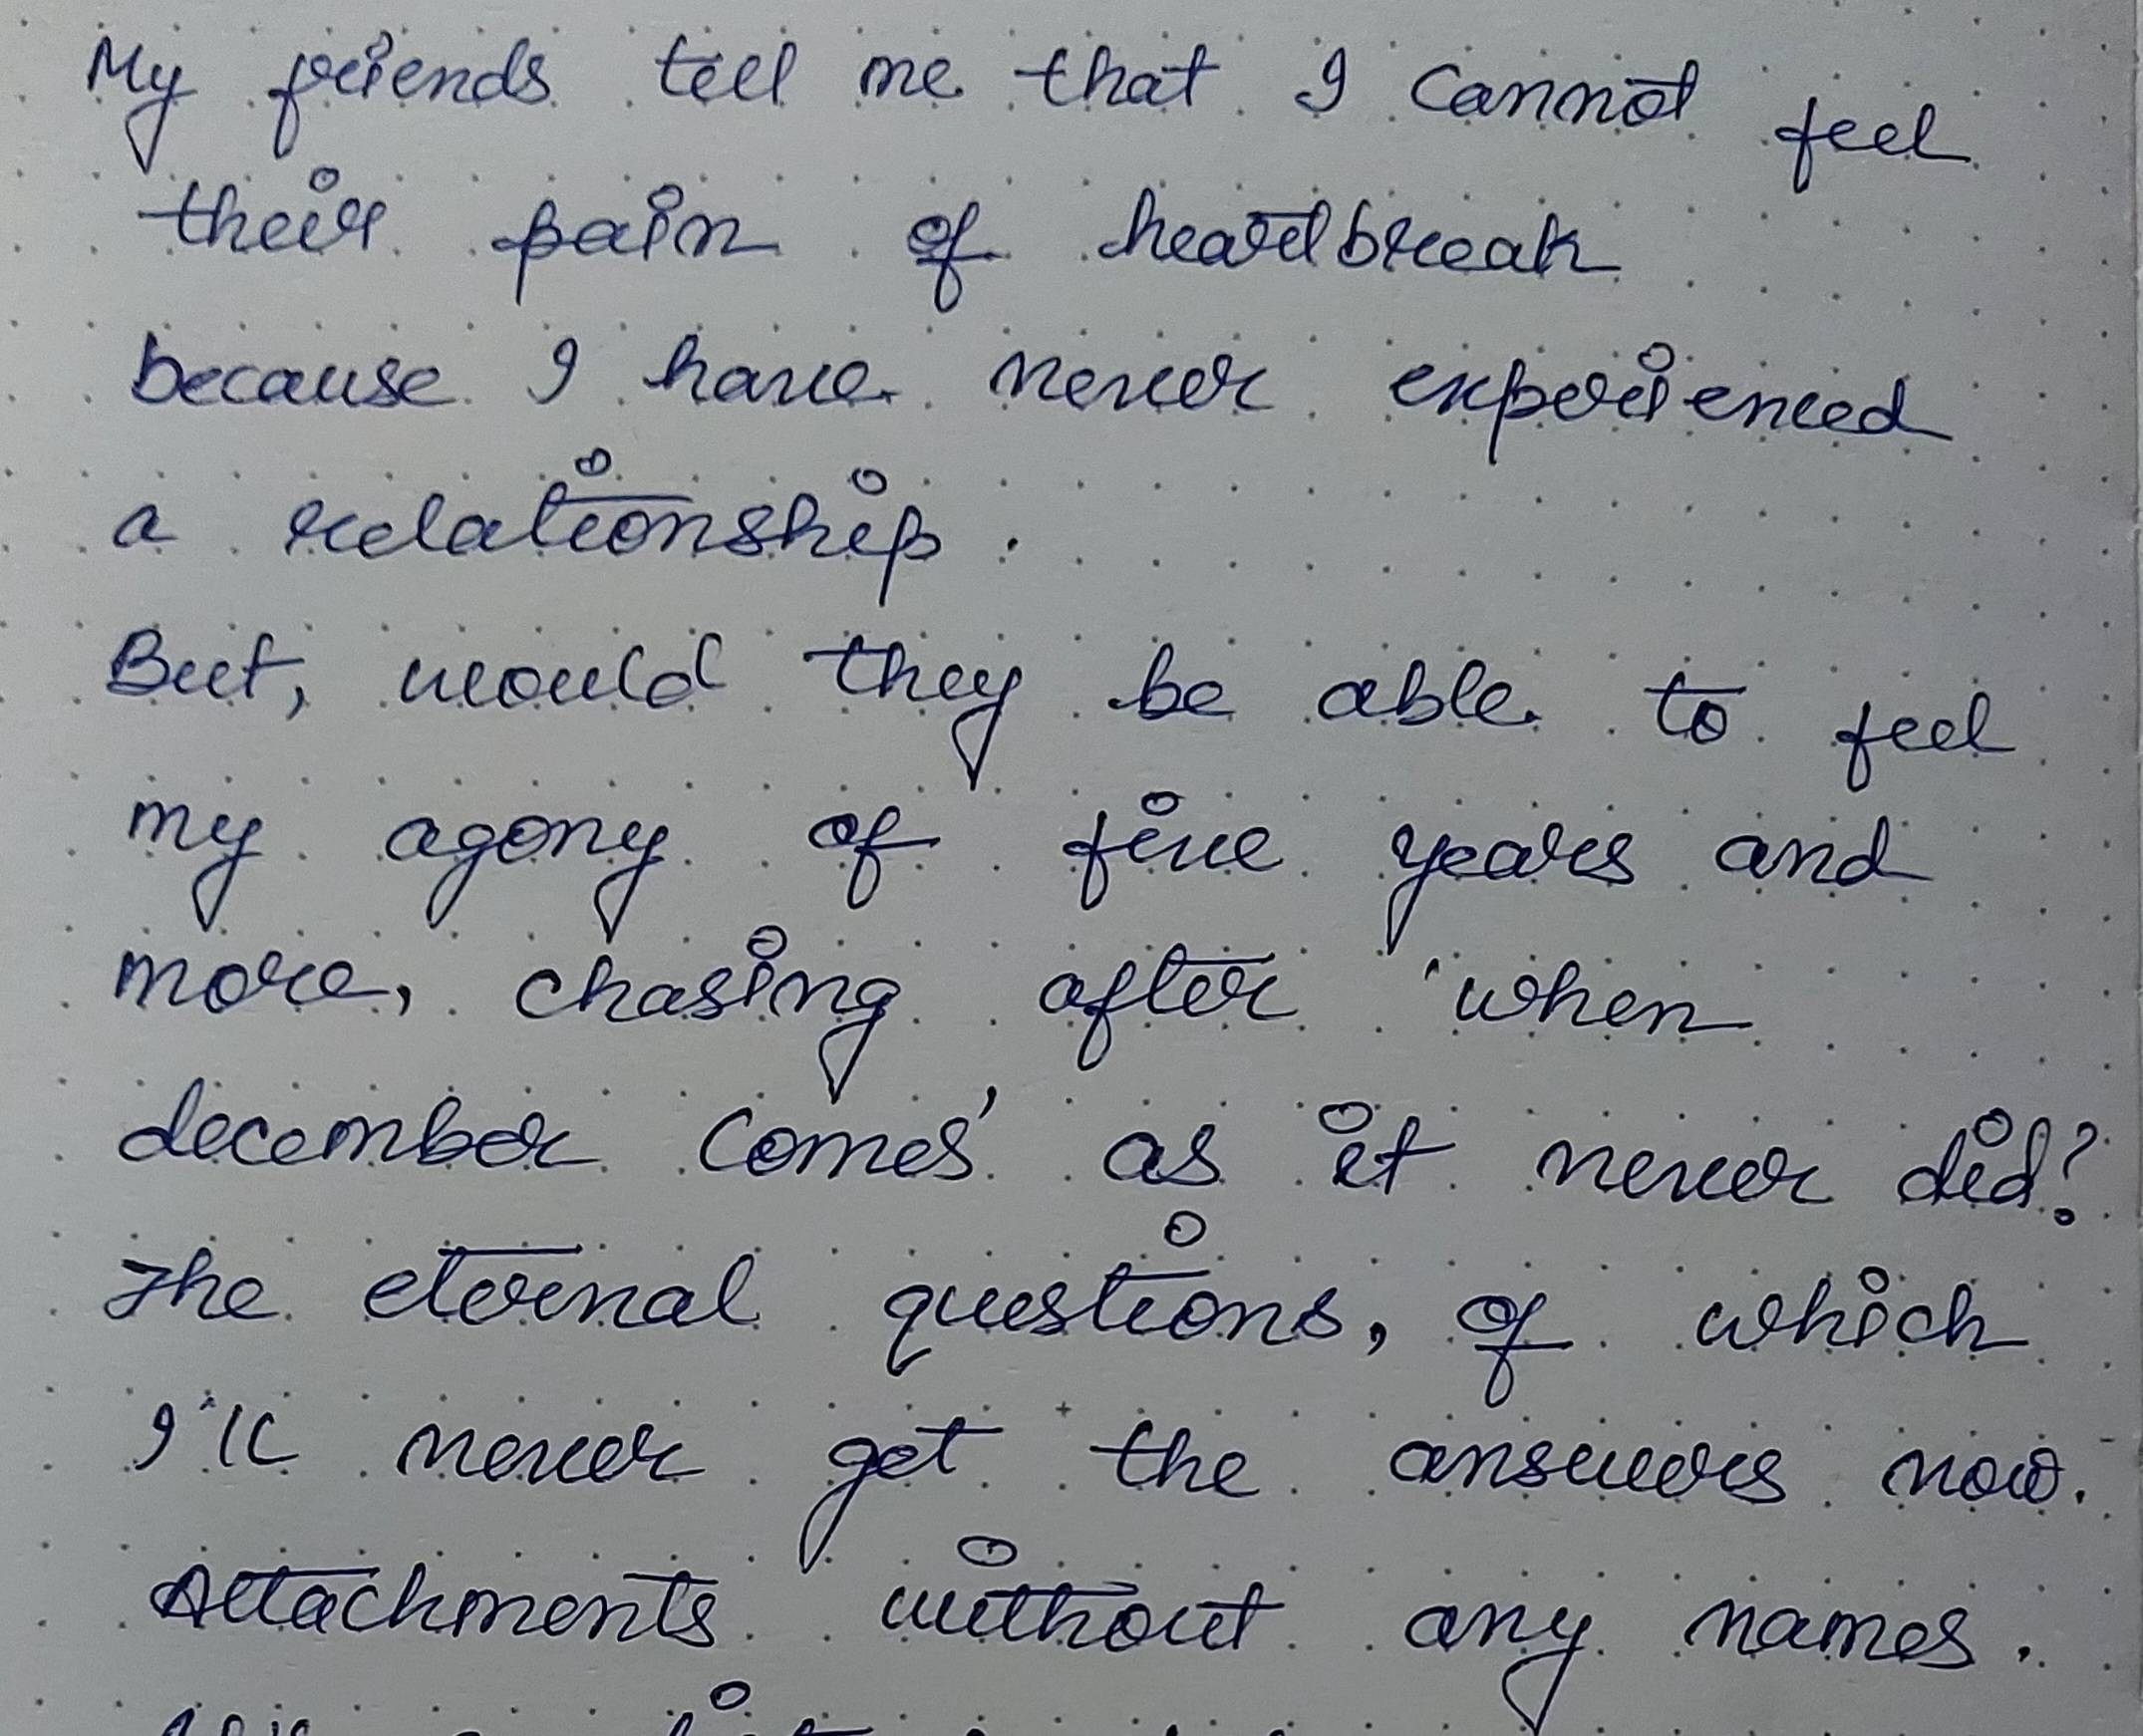 My friends tell me that I cannot feel
their pain of heartbreak
because I have never experienced
a relationship.
But, would they be able to feel
my agony of five years and
more, chasing after 'when
december comes' as it never did?
The eternal questions, of which
I'll never get the answers now.
Attachments without any names.